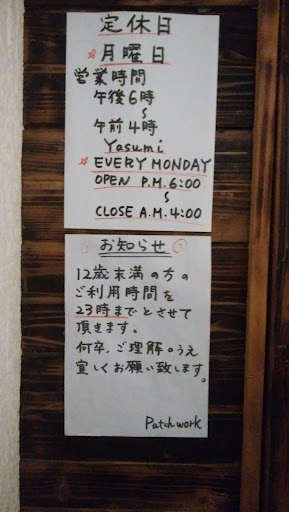 定休日
☆月曜日
営業時間
午後6時
〜
午前4時
Yasumi
☆EVERY MONDAY
OPEN P.M.6:00
〜
CLOSE A.M.4:00
お知らせ
12歳末満の方の
ご利用時間を
23時までとさせて
頂きます。
何卒、ご理解のうえ
宜しくお願い致します。
Patchwork